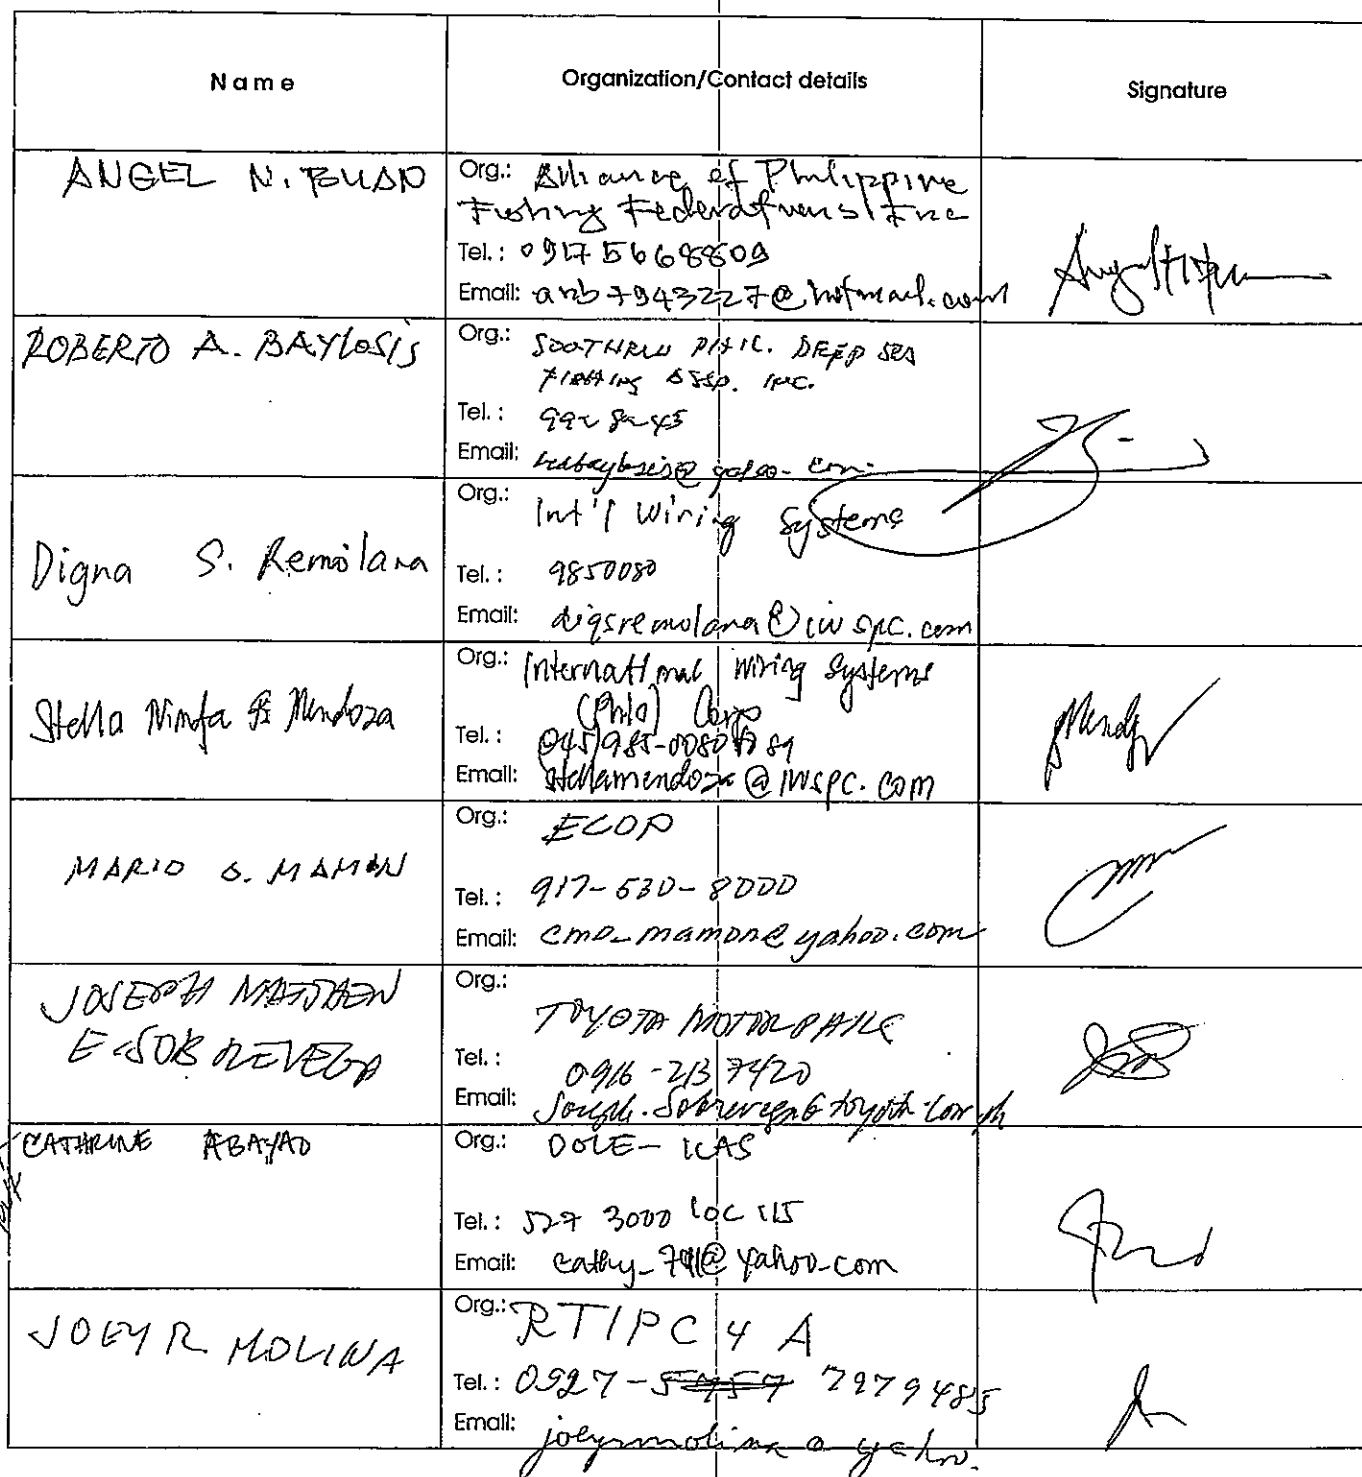 Name Organization/Contact details Signature
ANGEL N. BUAD
Org.: Alliance of Philippine
Fishing Federations Inc
Tel.: 0917 5668809
Email: anb7943227@hotmail.com
ROBERTO A. BAYLOSIS
Org.: SOUTHERN PHIL. DEEP SEA
FISHING ASSO. INC.
Tel.:
Email:
Digna S. Remolana
Org.: Int'l Wiring Systems
Tel.: 9850080
Email: digsremolana@iwspc.com
Stella Ninfa Mendoza
Org.: International Wiring Systems
(Phils) Corp
Tel.: (045)985-0080
Email: stellamendoza@iwspc.com
MARIO O. MAMON
Org.: ECOP
Tel.: 917-530-8000
Email: cmo_mamon@yahoo.com
JOSEPH MATTHEW
E. SOBREVEGA
Org.:
TOYOTA MOTOR PHILS
Tel.: 0916-2137420
Email: Joseph.Sobrevega@toyota.com.ph
CATHRINE ABAYAO
Org.: DOLE-ILAS
Tel.: 527 3000 loc 115
Email:
JOEY R. MOLINA
Org.: RTIPC 4A
Tel.: 0927- 7979485
Email: joeyrmolina@yahoo.